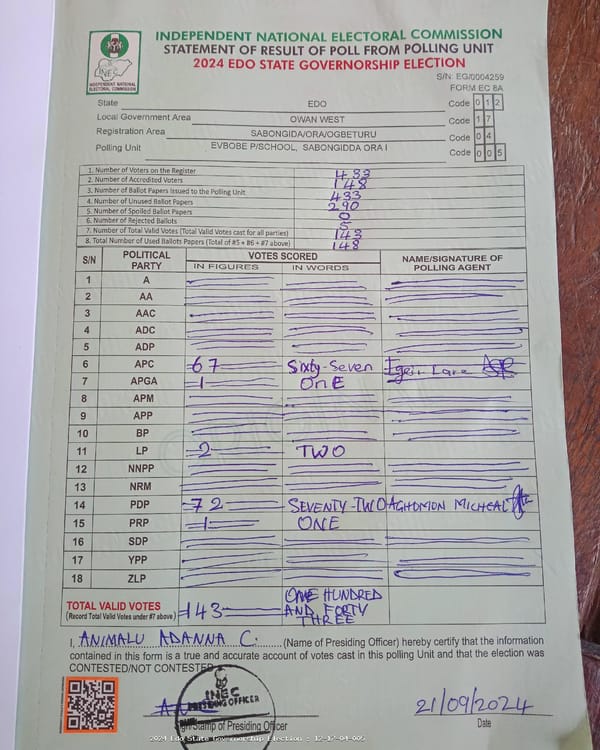 INDEPENDENT NATIONAL ELECTORAL COMMISSION
STATEMENT OF RESULT OF POLL FROM POLLING UNIT
2024 EDO STATE GOVERNORSHIP ELECTION
INEC
INDEPENDENT NATIONAL
ELECTORAL COMMISSION
S/N: EG/0004259
FORM EC 8A
State EDO Code 0 1 2
Local Government Area OWAN WEST Code 1 7
Registration Area SABONGIDA/ORA/OGBETURU Code 0 4
Polling Unit EVBOBE P/SCHOOL, SABONGIDDA ORA I Code 0 0 5
1. Number of Voters on the Register 433
2. Number of Accredited Voters 148
3. Number of Ballot Papers Issued to the Polling Unit 433
4. Number of Unused Ballot Papers 290
5. Number of Spoiled Ballot Papers 0
6. Number of Rejected Ballots 5
7. Number of Total Valid Votes (Total Valid Votes cast for all parties) 143
8. Total Number of Used Ballots Papers (Total of #5 + #6 + #7 above) 148
S/N POLITICAL PARTY VOTES SCORED NAME/SIGNATURE OF POLLING AGENT
IN FIGURES IN WORDS
1 A
2 AA
3 AAC
4 ADC
5 ADP
6 APC 67 Sixty-Seven
7 APGA 1 OnE
8 APM
9 APP
10 BP
11 LP 2 TWO
12 NNPP
13 NRM
14 PDP 72 SEVENTY-TWO AGHOMON MICHEAL
15 PRP 1 ONE
16 SDP
17 YPP
18 ZLP
TOTAL VALID VOTES 143 ONE HUNDRED AND FORTY THREE
(Record Total Valid Votes under #7 above)
I, ANIMALU ADANNA C. (Name of Presiding Officer) hereby certify that the information
contained in this form is a true and accurate account of votes cast in this polling Unit and that the election was
CONTESTED/NOT CONTESTED
INEC
PRESIDING OFFICER
21/09/2024
Sign/Stamp of Presiding Officer Date
2024 Edo State Governorship Election : 12-17-04-005